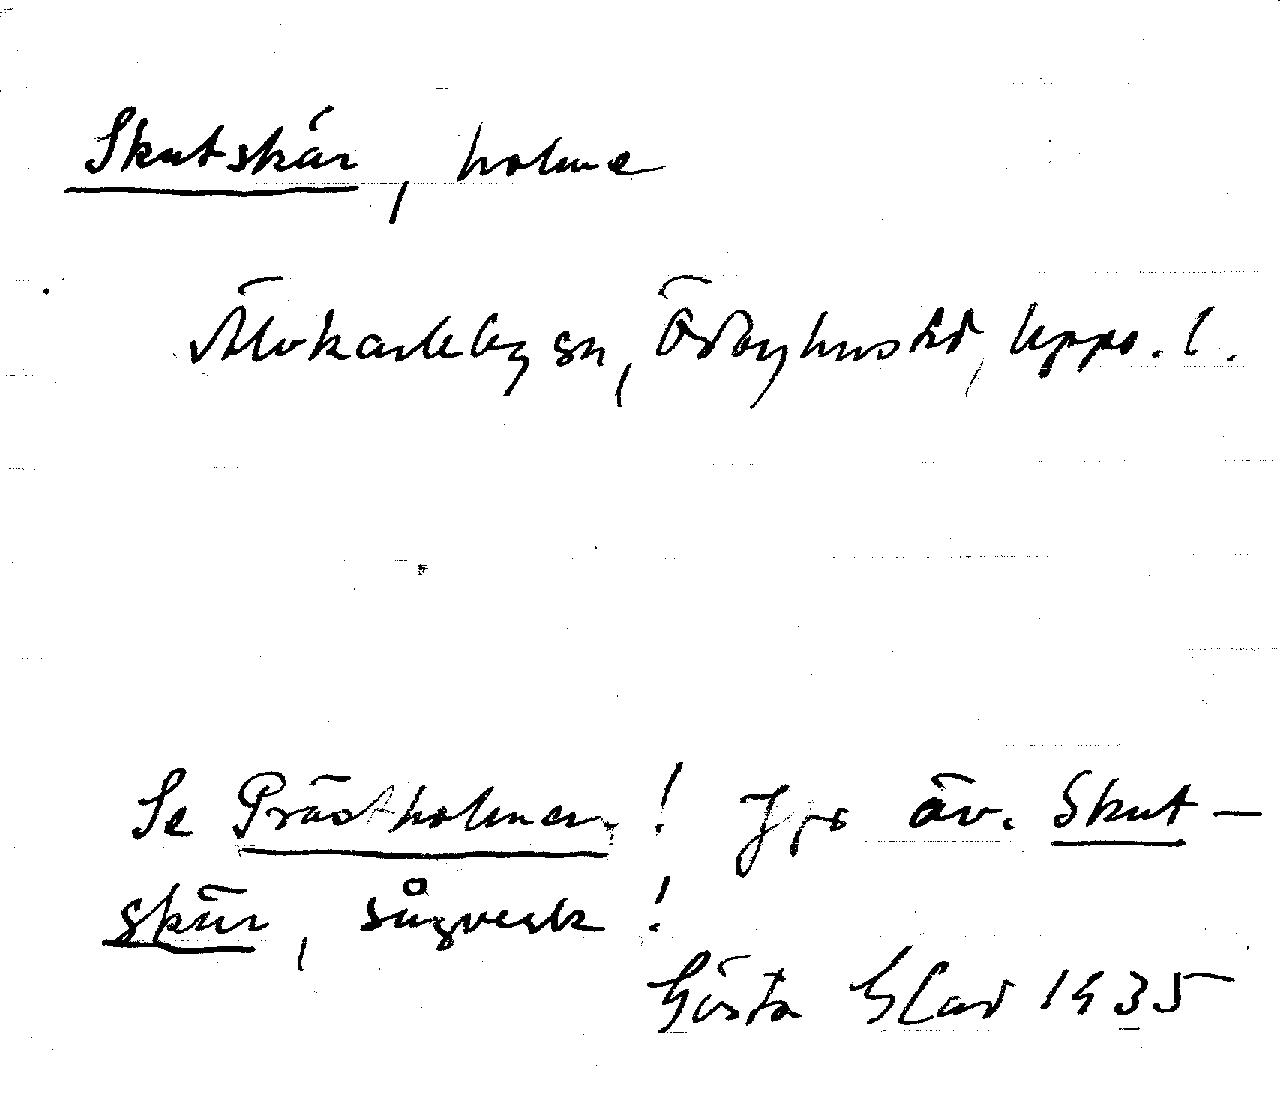 Skutskär, holme
Älvkarleby sn, Örbyhus hd, Upps. l.
Se Prästholmen! Jfr äv. Skut-
skär, sågverk!
Gösta Blad 1935